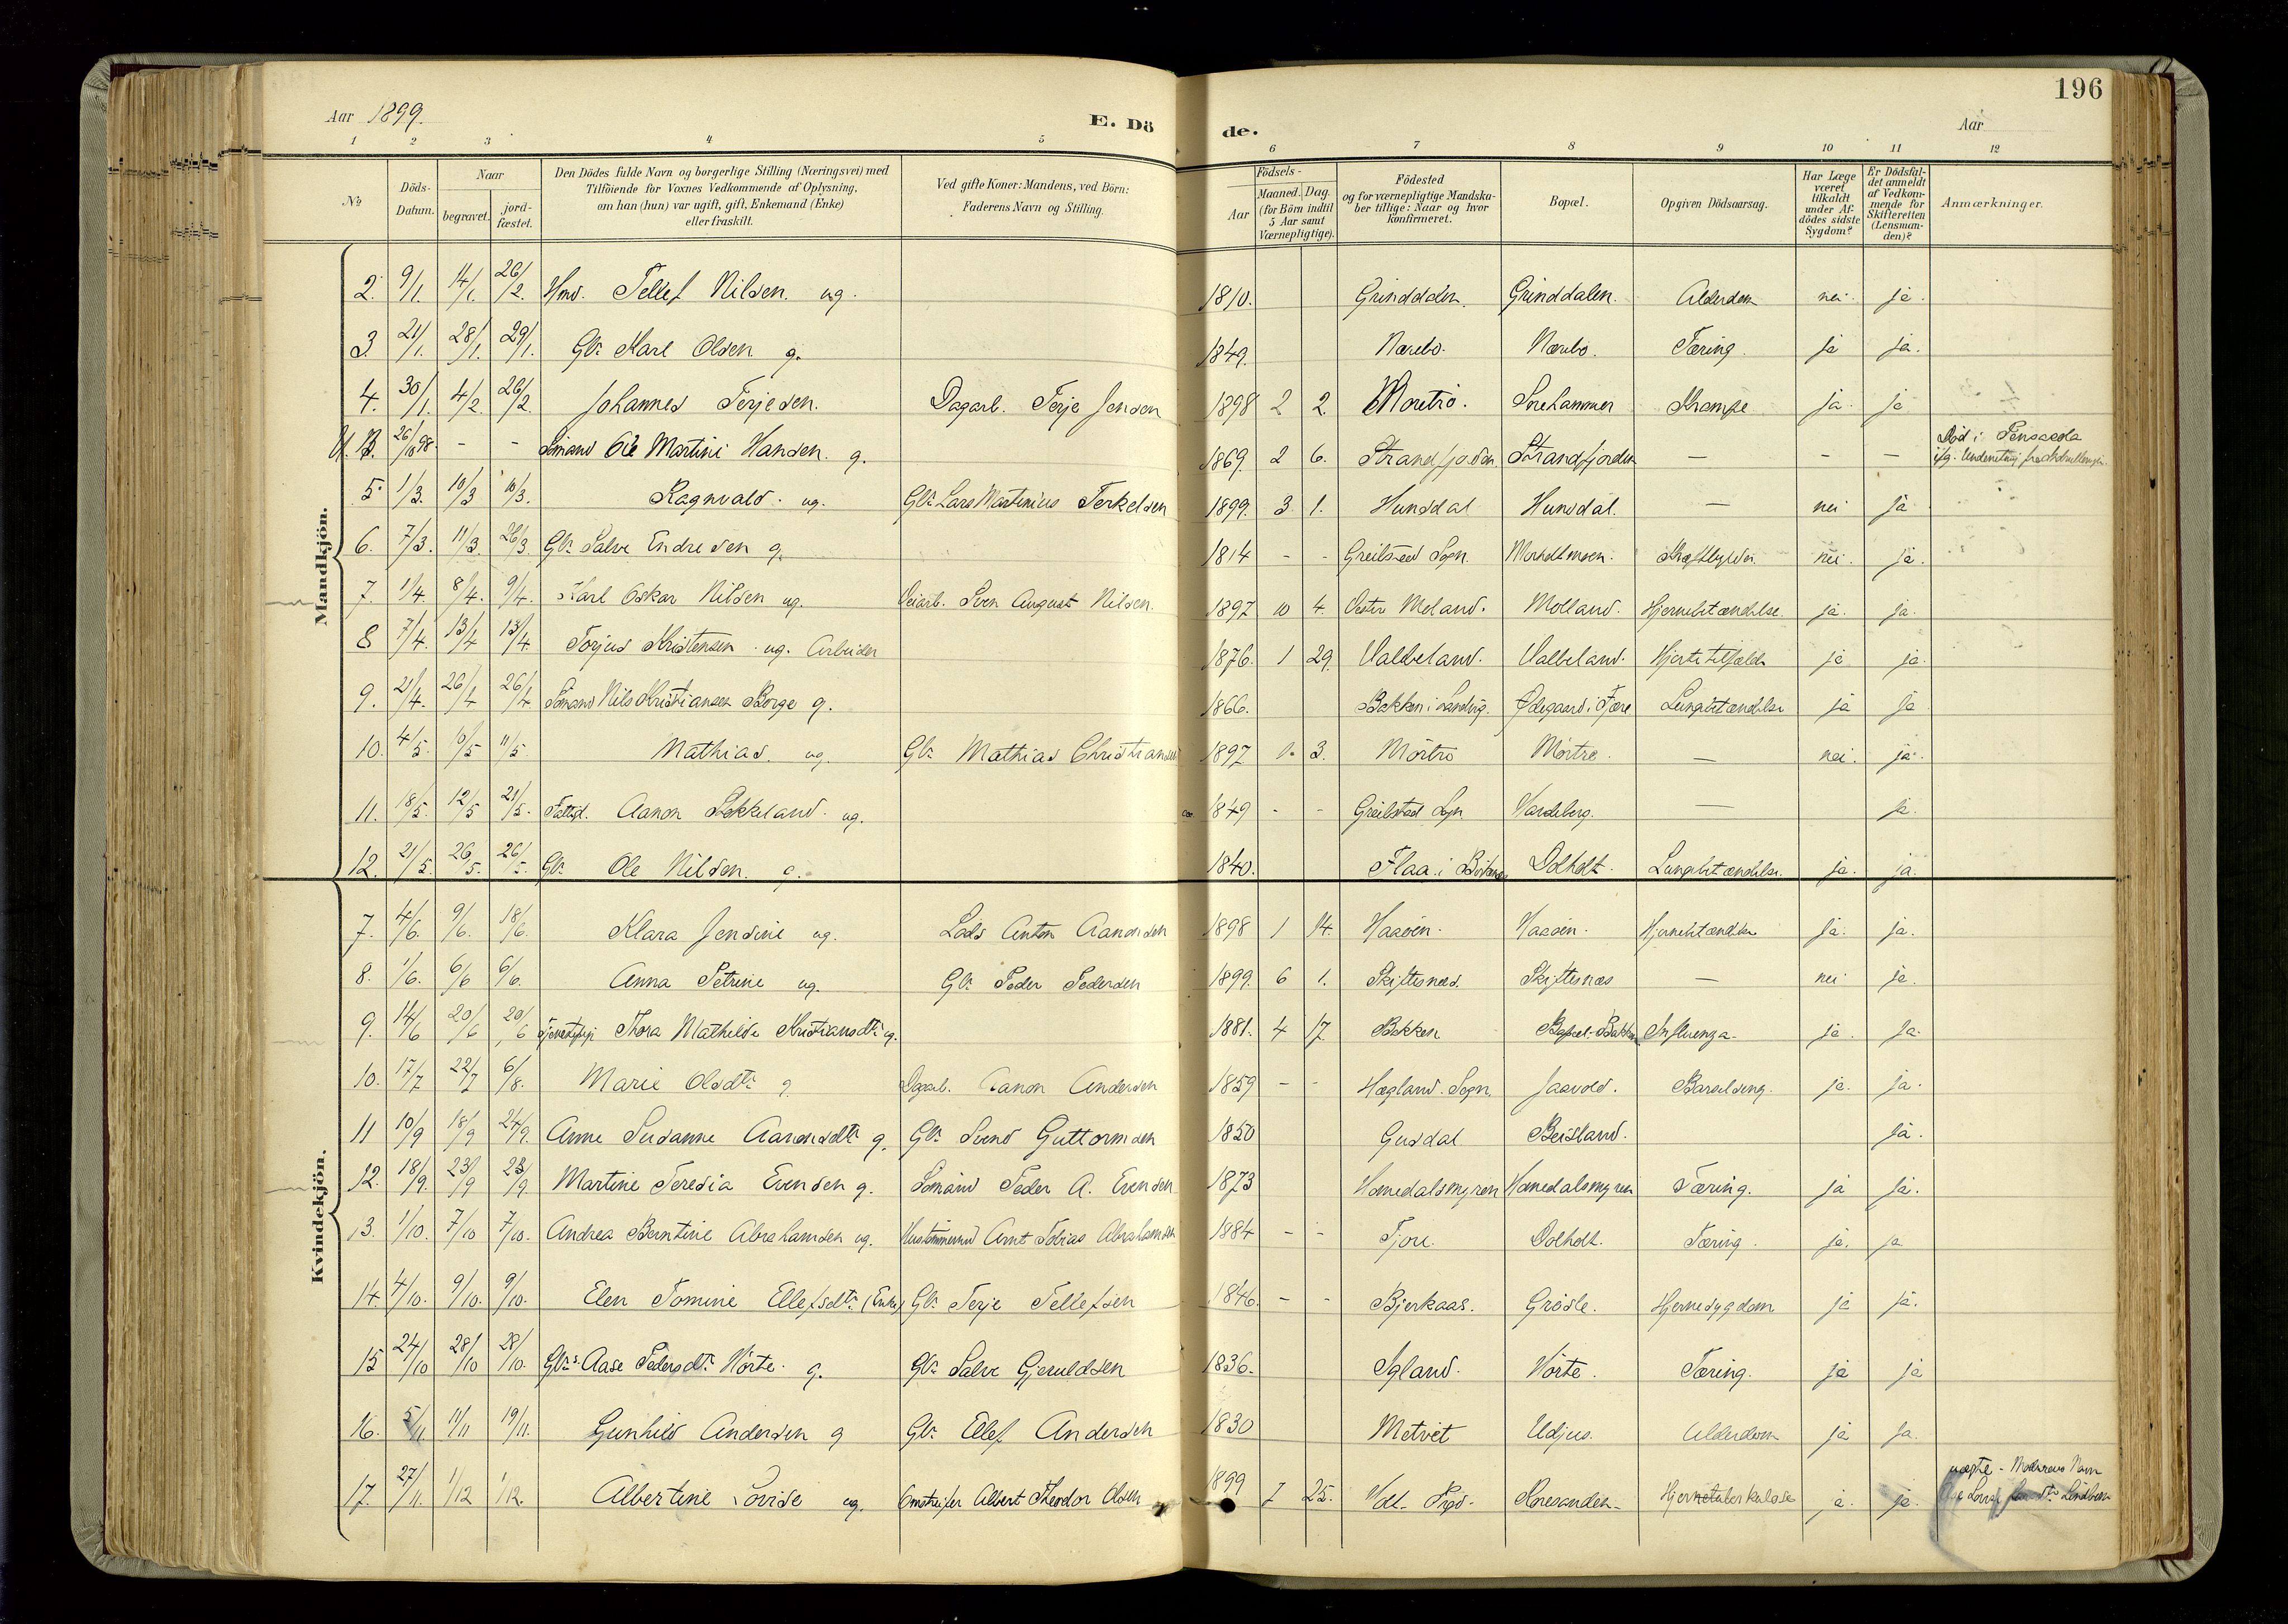 196
Aar 1899.
E. Dö
de.
Aar
1 2 3 4 5 6 7 8 9 10 11 12
№
Döds-Datum.
Naar
begravet.
jord-fæstet.
Den Dödes fulde Navn og borgerlige Stilling (Næringsvei) med
Tilföiende for Voxnes Vedkommende af Oplysning,
om han (hun) var ugift, gift, Enkemand (Enke)
eller fraskilt.
Ved gifte Koner: Mandens, ved Börn:
Faderens Navn og Stilling.
Födsels-
Aar
Maaned. Dag.
(for Börn indtil
5 Aar samt
Værnepligtige).
Födested
og for værnepligtige Mandska-
ber tillige: Naar og hvor
konfirmeret.
Bopæl.
Opgiven Dödsaarsag.
Har Læge
været
tilkaldt
under Af-
dödes sidste
Sygdom?
Er Dödsfal-
det anmeldt
af Vedkom-
mende for
Skifteretten
(Lensman-
den)?
Anmærkninger.
Mandkjön.
2. 9/1. 14/1. 26/2. Tellef Nilsen. ug. 1810. Grinddalen. Grinddalen. Alderdom nei. ja.
3. 21/1. 28/1. 29/1. Gbr. Karl Olsen g. 1849. Nærebo. Nærebo. Tæring. ja ja.
4. 30/1. 4/2. 26/2. Johannes Terjesen. Dagarb. Terje Jensen 1898 2 2 Moretrö. Snehammer Krampe ja. ja
N.B. 26/10 98. - - Sömand Ole Martini Hansen. g. 1869. 2 6. Strandfjorden Strandfjorden — - — Död i Pensacola
5. 1/3. 10/3 10/3. Ragnvald. ug. Gbr. Lars Martinius Terkelsen 1899. 3 1. Hunsdal Hunsdal. — nei ja
6. 7/3. 11/3. 26/3. Gbr. Salve Endresen g. 1814 - - Greibsted Sogn. nei. ja.
7. 1/4. 8/4. 9/4. Karl Oskar Nilsen ug. Veiarb. Sven August Nilsen. 1897 10 4. Vester Moland. Molland. Hjernebetændelse. ja. ja.
8 7/4. 13/4 13/4. Torjus Kristensen ug. Arbeider 1876. 1 29. Valbeland. Valbeland. Hjertetilfælde ja ja.
9. 21/4. 26/4 26/4. Sömand Nils Kristiansen Borge g. 1866. Bakken i Landvig. Ødegaard i Fjære Lungebetændelse ja ja
10. 4/5. 10/5 11/5. Mathias. ug. Gbr. Mathias Christiansen 1897 3. Mörtrö Mörtrö. — nei. ja.
11. 18/5. 12/5 21/5. Aanon Lökkeland. ug. 1849 - - Greibsted Sogn. Vardeberg. — ja.
12. 21/5. 26/5. 26/5. Gbr. Ole Nilsen. g. 1840. Flaa i Dolholt. Lungebetændelse. ja. ja.
Kvindekjön.
7. 4/6. 9/6. 18/6. Klara Jensine ug. Lods Anton Aanonsen 1898 1 14. Haaöen. Haaöen. Hjernebetændelse ja. ja.
8. 1/6. 6/6 6/6. Anna Petrine ug. Gbr. Peder Pedersen 1899. 6 1. Skiftenæs. Skiftenæs — nei ja.
9. 14/6 20/6 20/6 Thora Mathilde Kristiansdtr. ug. 1881. 4 17. Bakken Influenza. ja. ja.
10. 17/7 22/7 6/8. Marie Olsdtr. g Dagarb. Aanon Andersen 1859 - - Hægland Sogn. Jaavold. Barselseng. ja. ja.
11 10/9 18/9 24/9. Anne Susanne Aanonsdtr. g. Gbr. Svend Guttormsen 1850 Gusdal Beisland. ja.
12. 18/9. 23/9 23/9 Martine Teresia Evensen g. Sömand Peder A. Evensen 1873 Homedalsmyren Homedalsmyren Tæring. ja ja.
13. 1/10. 7/10 7/10. Andrea Berntine Abrahamsen ug. Hustömmermd. Arnt Tobias Abrahamsen 1884 - - Fjære. Dolholt. Tæring. ja. ja
14. 4/10. 9/10. 9/10. Elen Tomine Ellefsdtr. (Enke) Gbr. Terje Tellefsen 1846. - - Bjerkaas. Grösle. Hjernesygdom ja ja.
15 24/10 28/10 28/10. Gbrs. Aase Pedersdtr. Hörte. g. Gbr. Salve Gjeruldsen 1836. Igland. Hörte. Tæring. ja ja
16. 5/11. 11/11 19/11. Gunhild Andersen g Gbr. Ellef Andersen 1830 Metveit Udjus. Alderdom ja ja.
17. 27/11. 1/12 1/12. Albertine Lovise ug. Omstreifer Albert Theodor Olsen 1899 7 25. Hjernetuberkulose ja. ja. uægte - Moderens Navn